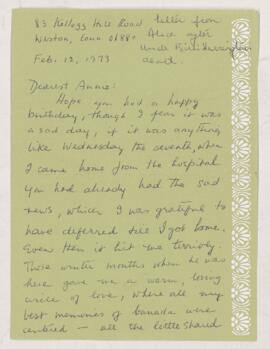 83 Kellogg Hill Road
Weston, Conn 0688
Feb. 12, 1973
Letter from
Alice after
Uncle
death.
Dearest Annie:
Hope you had a happy
birthday, though I fear it was
a sad day, if it was anything
like Wednesday the seventh, when
I came home from the hospital.
You had already had the sad
news, which I was grateful to
have deferred till I got home.
Even then it hit me terribly.
Those winter months when he was
here gave me a warm, loving
circle of love, where all my
best memories of Canada were
centred — all the little shared